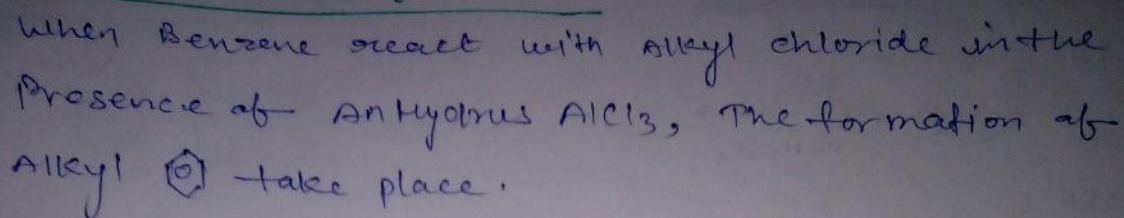 When Benzene react with Alkyl chloride in the
Presence of Anhydrus AlCl3, The formation of
Alkyl ⌬ take place.